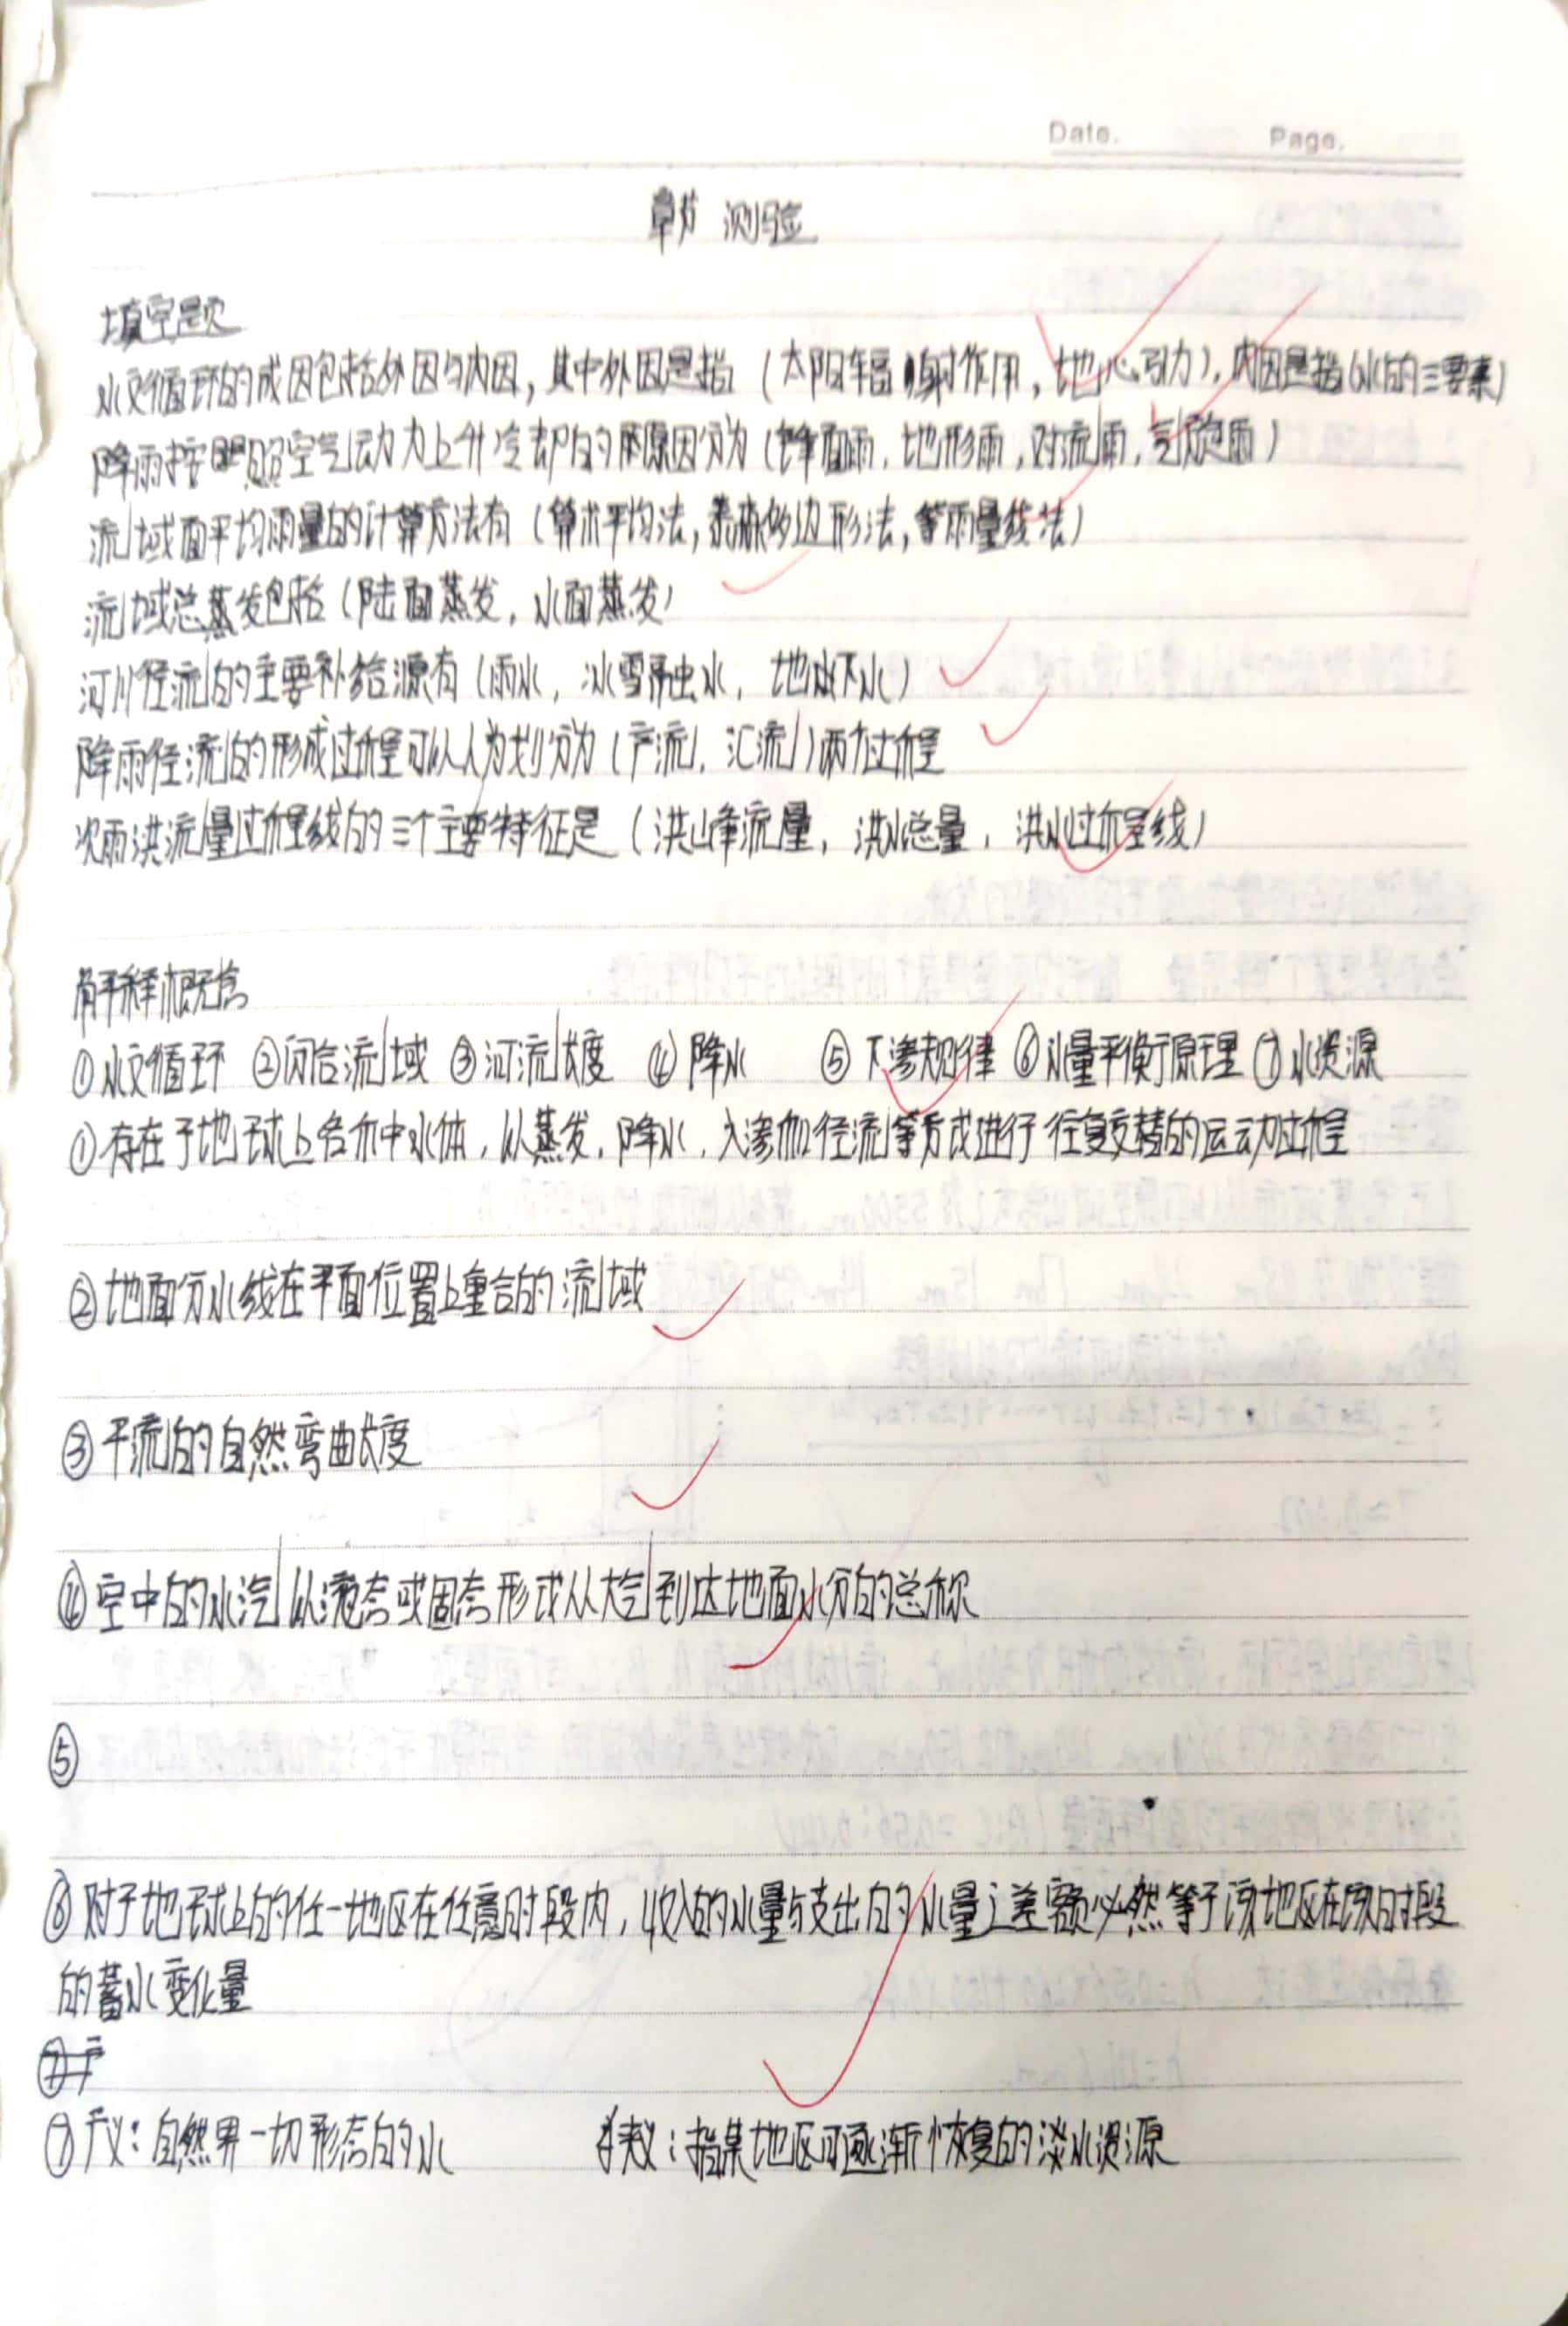 Date. Page.
章节 测验
填空题
水文循环的成因包括外因与内因，其中外因是指（太阳辐射作用，地心引力），内因是指（水的三要素）
降雨按照空气动力上升冷却的原因分为（锋面雨，地形雨，对流雨，气旋雨）
流域面平均雨量的计算方法有（算术平均法，泰森多边形法，等雨量线法）
流域总蒸发包括（陆面蒸发，水面蒸发）
河川径流的主要补给源有（雨水，冰雪融水，地下水）
降雨径流的形成过程可以人为划分为（产流，汇流）两个过程
次雨洪流量过程线的三个主要特征是（洪峰流量，洪水总量，洪水过程线）
解释概念
①水文循环 ②闭合流域 ③河流长度 ④降水 ⑤下渗规律 ⑥水量平衡原理 ⑦水资源
①存在于地球上各种中水体，以蒸发，降水，入渗和径流等方式进行往复交替的运动过程
②地面分水线在平面位置上重合的流域
③干流的自然弯曲长度
④空中的水汽以液态或固态形式从大气到达地面水分的总称
⑤
⑥对于地球上的任一地区在任意时段内，收入的水量与支出的水量之差额必然等于该地区在该时段
的蓄水变化量
⑦广义：自然界一切形态的水 狭义：指某地区可逐渐恢复的淡水资源